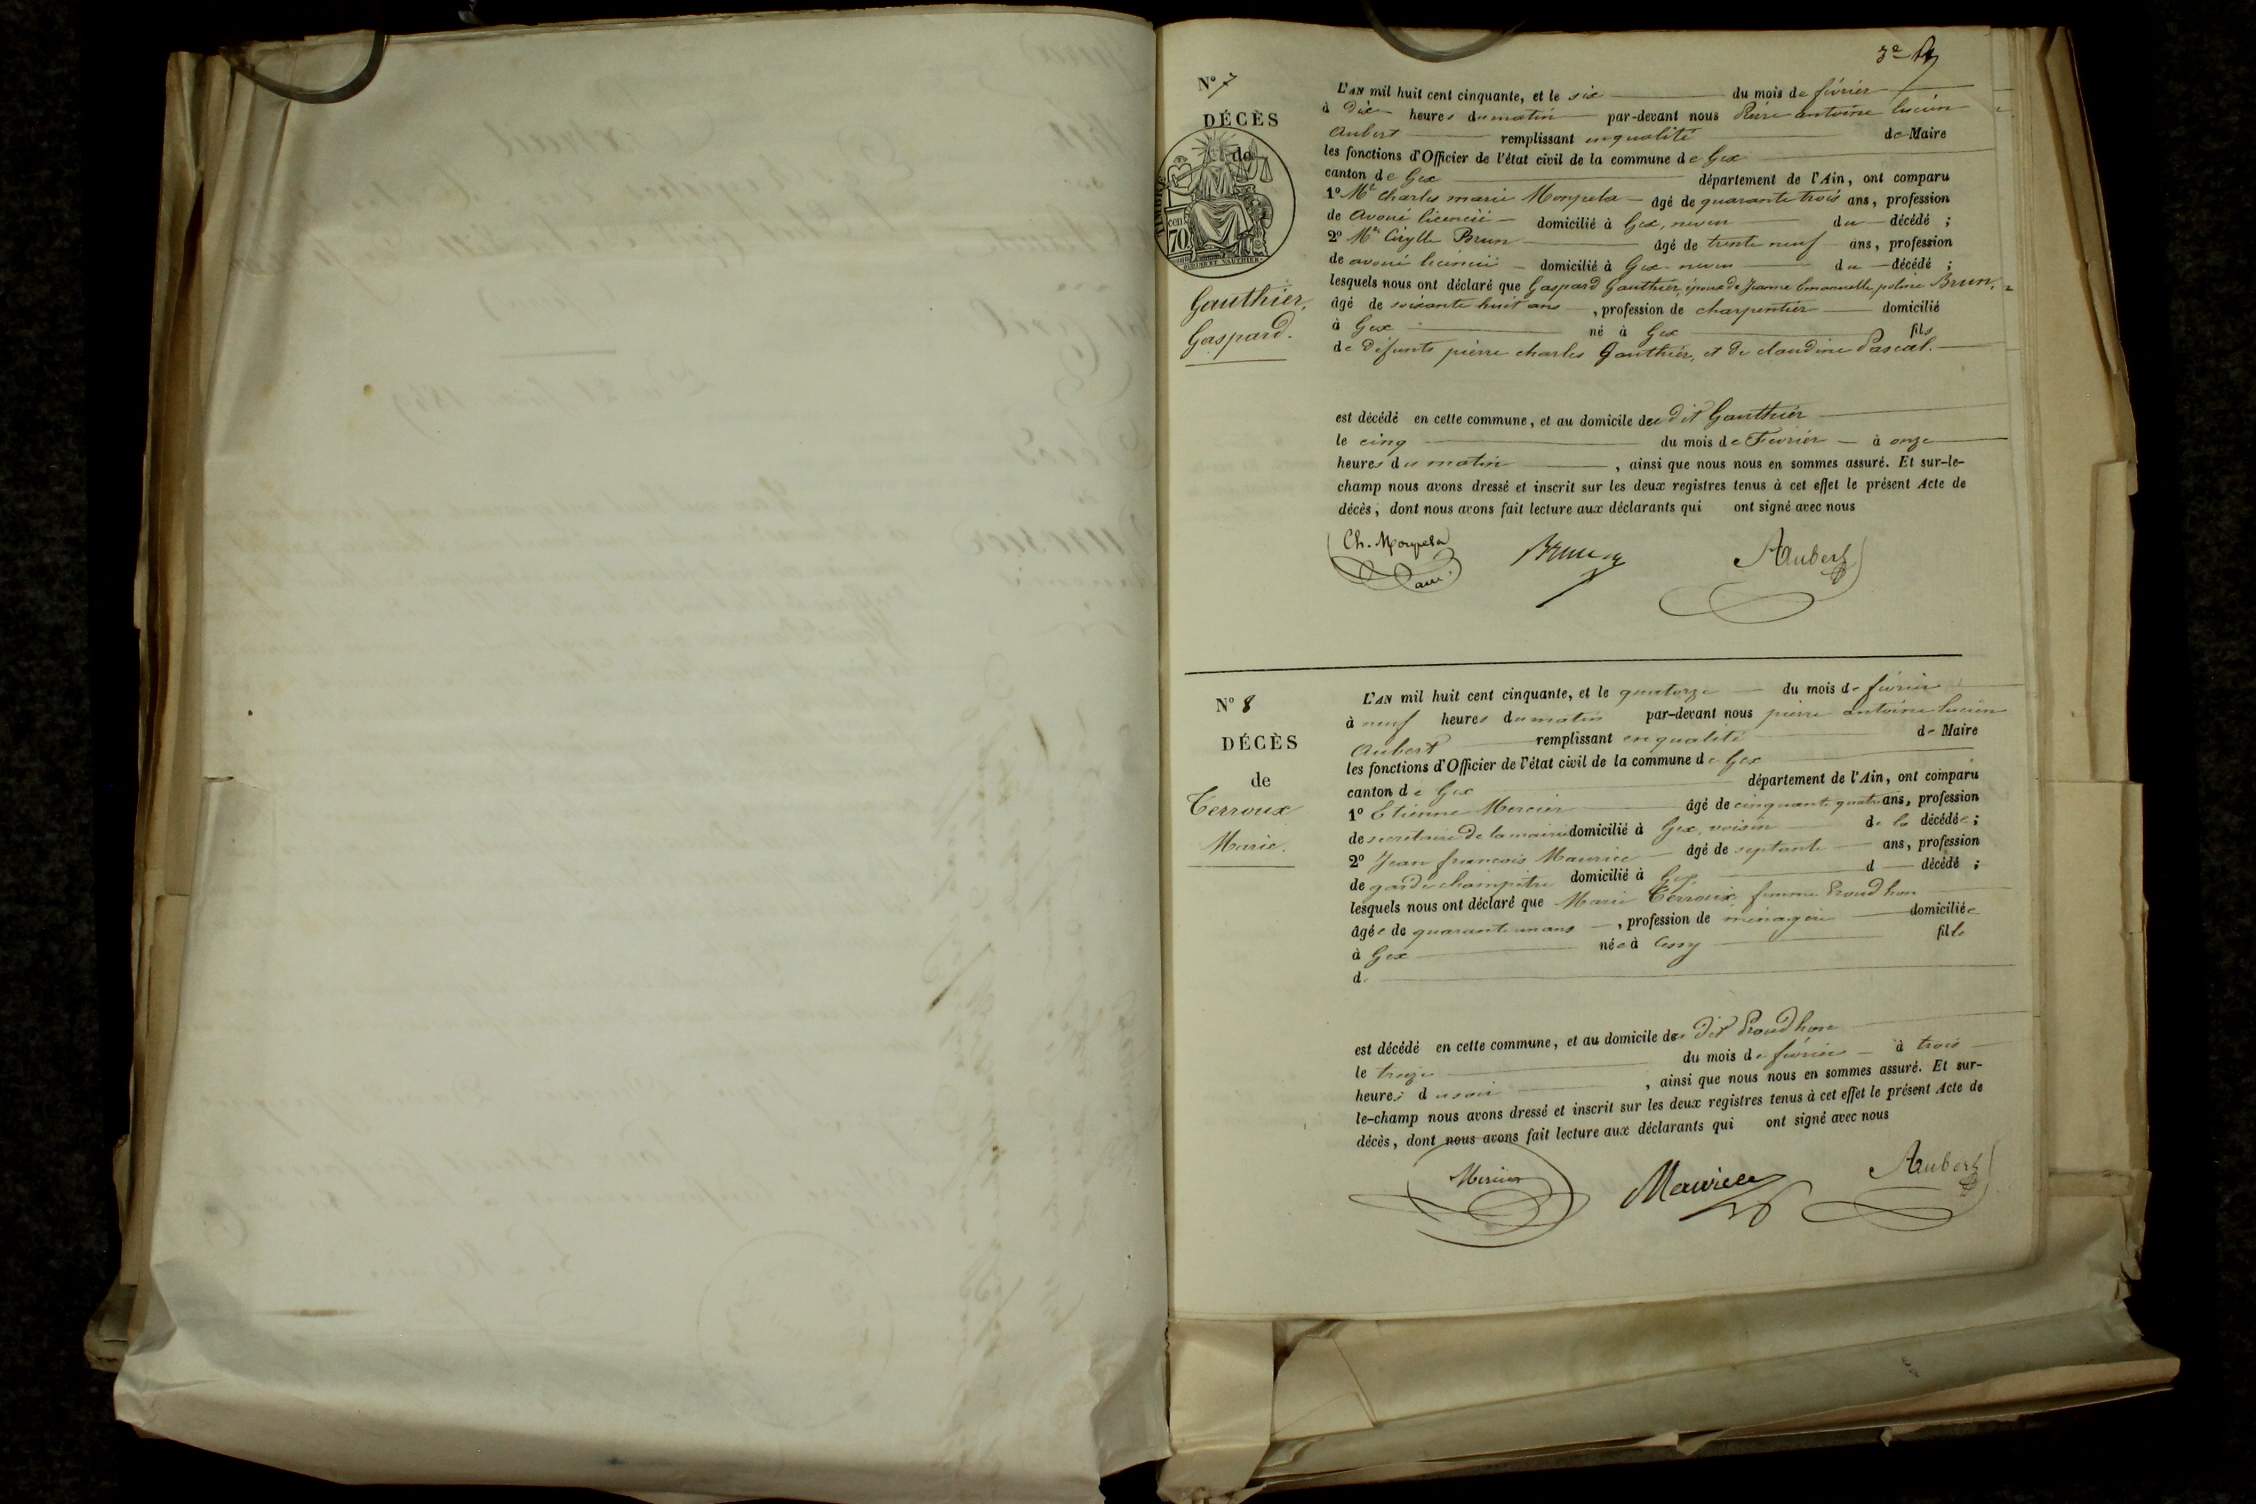 3e
N° 7
DÉCÈS
de
TIMBRE
70
Gauthier,
Gaspard.
L'AN mil huit cent cinquante, et le six du mois de février
à Dix heures du matin par-devant nous Pierre antoine lucien
Aubert remplissant en qualité de Maire
les fonctions d'Officier de l'état civil de la commune de Gex
canton de Gex département de l'Ain, ont comparu
1° Mr Charles marie Monpela âgé de quarante trois ans, profession
de avoué licencié domicilié à Gex, neveu du décédé ;
2° Mr Cirylle Brun âgé de trente neuf ans, profession
de avoué licencié domicilié à Gex neveu du décédé ;
lesquels nous ont déclaré que Gaspard Gauthier, époux de Jeanne Emanuelle poline Brun,
âgé de soixante huit ans , profession de charpentier domicilié
à Gex né à Gex fils
de Défunts pierre charles Gauthier, et de claudine Pascal.
est décédé en cette commune, et au domicile du dit Gauthier
le cinq du mois de Fevrier à onze
heures du matin , ainsi que nous nous en sommes assuré. Et sur-le-
champ nous avons dressé et inscrit sur les deux registres tenus à cet effet le présent Acte de
décès, dont nous avons fait lecture aux déclarants qui ont signé avec nous
Ch. Monpela Brun Aubert
N° 8
DÉCÈS
de
Terroux
Marie.
L'AN mil huit cent cinquante, et le quatorze du mois de février
à neuf heures du matin par-devant nous pierre antoine lucien
Aubert remplissant en qualité de Maire
les fonctions d'Officier de l'état civil de la commune de Gex
canton de Gex département de l'Ain, ont comparu
1° Etienne Mercier âgé de cinquante quatre ans, profession
de secretaire de la mairie domicilié à Gex, voisin de la décédée ;
2° Jean francois Maurice âgé de septante ans, profession
de garde champêtre domicilié à Gex d décédé ;
lesquels nous ont déclaré que Marie Terroux femme Proudhon
âgée de quarante un ans , profession de ménagère domiciliée
à Gex née à Cessy fille
de
est décédé en cette commune, et au domicile du dit Proudhon
le treize du mois de février à trois
heures du soir , ainsi que nous nous en sommes assuré. Et sur-
le-champ nous avons dressé et inscrit sur les deux registres tenus à cet effet le présent Acte de
décès, dont nous avons fait lecture aux déclarants qui ont signé avec nous
Mercier Maurice Aubert